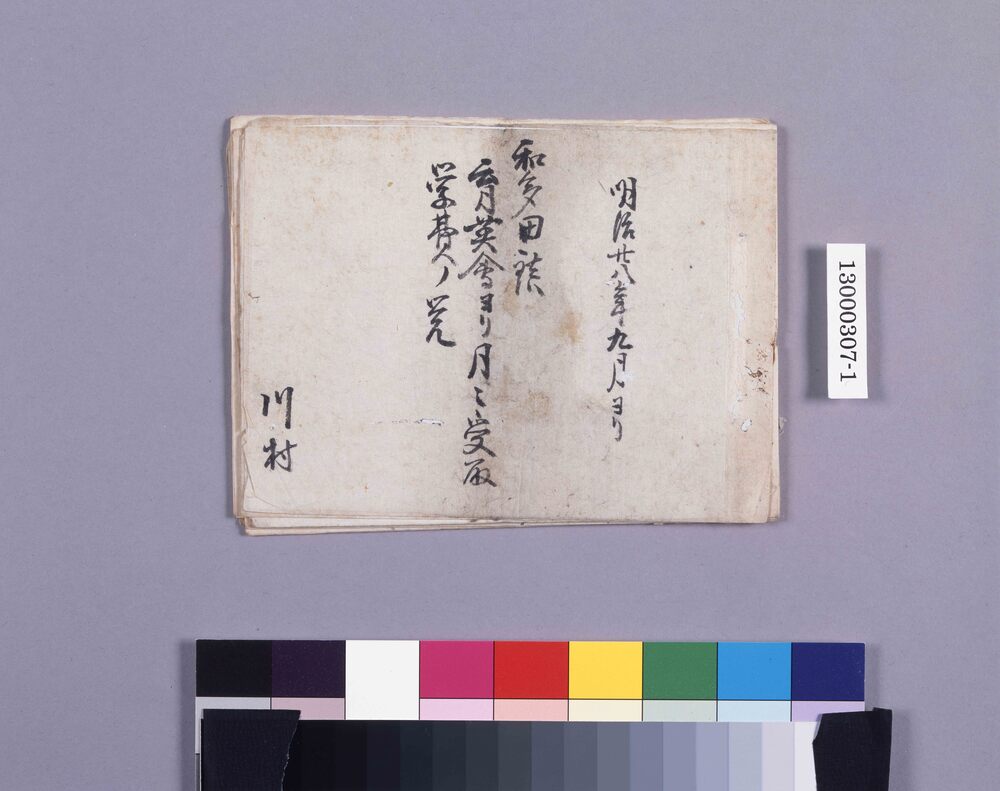 明治廿八年九月ヨリ
和多田
育英會ヨリ月々受取
学費金ノ覚
川村
13000307-1